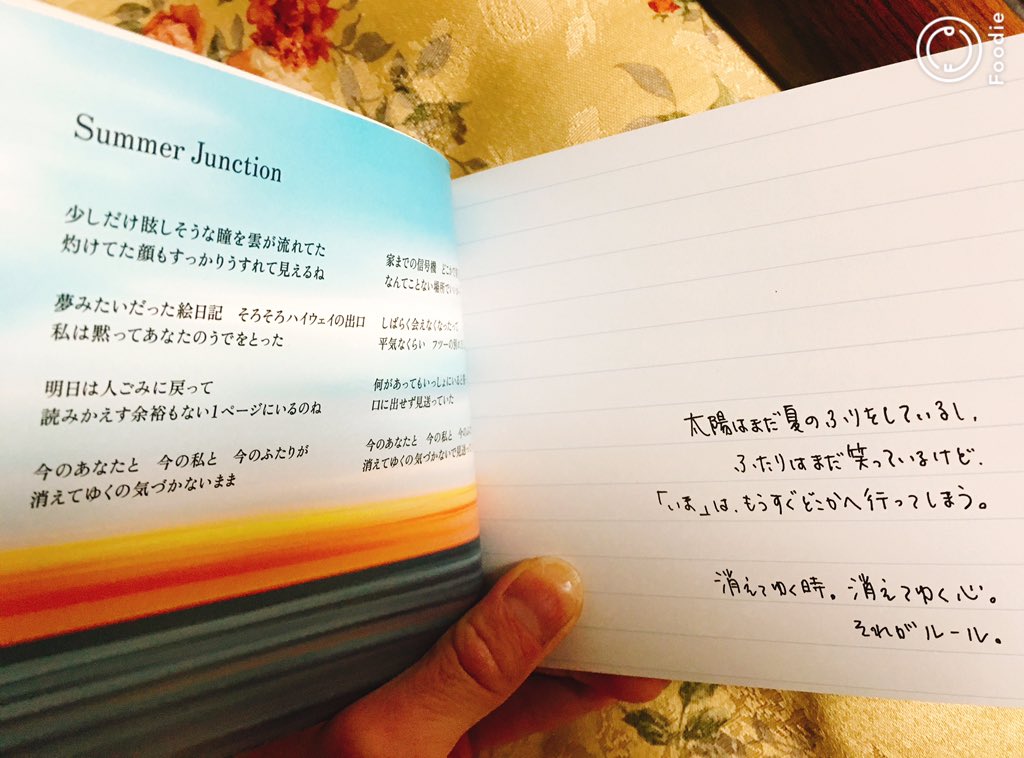 Summer Junction
少しだけ眩しそうな瞳を雲が流れてた
灼けてた顔もすっかりうすれて見えるね
夢みたいだった絵日記 そろそろハイウェイの出口
私は黙ってあなたのうでをとった
明日は人ごみに戻って
読みかえす余裕もない1ページにいるのね
今のあなたと 今の私と 今のふたりが
消えてゆくの気づかないまま
家までの信号機
なんてことない場所で
しばらく会えなくなったって
平気なくらい フツーの
何があってもいっしょにいると
口に出せず見送っていた
今のあなたと 今の私と
消えてゆくの気づかないで
太陽はまだ夏のふりをしているし、
ふたりはまだ笑っているけど、
「いま」は、もうすぐどこかへ行ってしまう。
消えてゆく時。消えてゆく心。
それがルール。
Foodie